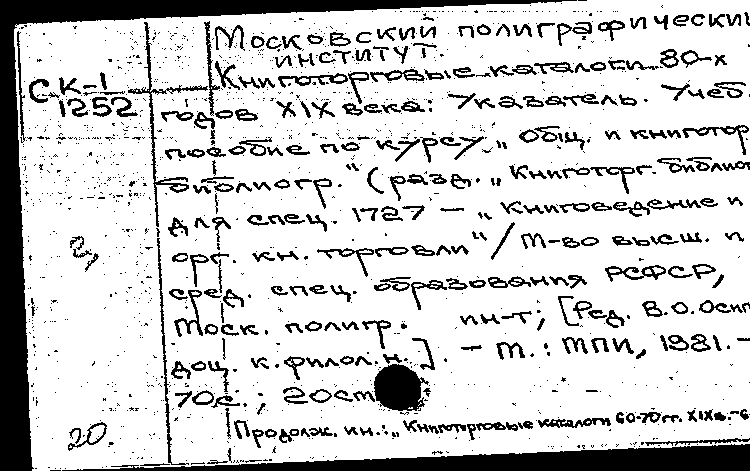 Московский полиграфический
институт.
СК-1
1252
Книготорговые каталоги 80-х
годов XIX века: Указатель. Учеб.
пособие по курсу „Общ. и книготор
библиогр." (разд. „Книготорг. библиог
для спец. 1727 - „Книговедение и
орг. кн. торговли" / М-во высш. и
сред. спец. образования РСФСР,
Моск. полигр. ин-т; [Ред. В.О.Осип
доц. к.филол.н.]. - М.: МПИ, 1981. -
70с.; 20см
20.
Продолж. кн.: „Книготорговые каталоги 60-70гг. XIXв.-